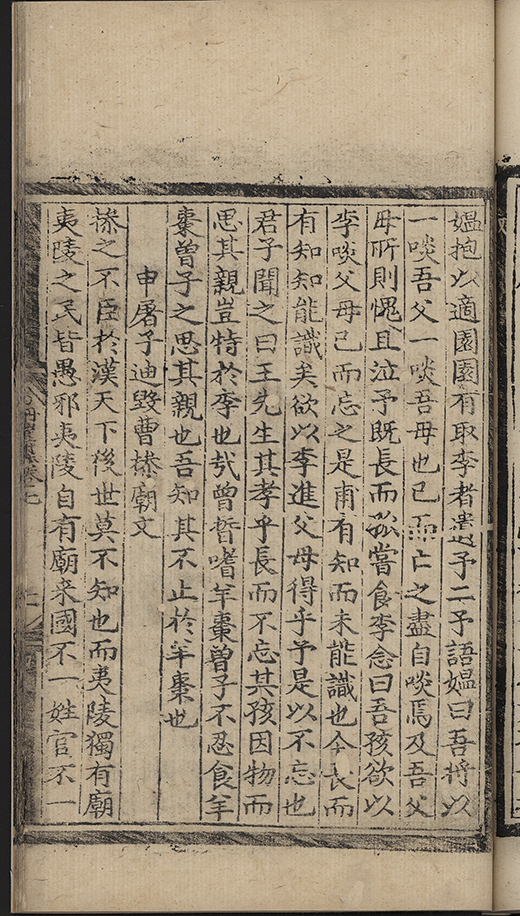 媼抱以適園園有取李者遺予二予語媼曰吾將以
一啖吾父一啖吾母也已而亡之盡自啖焉及吾父
母所則愧且泣予既長而孤嘗食李念曰吾孩欲以
李啖父母已而忘之是甫有知而未能識也今長而
有知知能識矣欲以李進父母得乎予是以不忘也
君子聞之曰王先生其孝乎長而不忘其孩因物而
思其親豈特於李也㢤曾晳嗜羊棗曽子不忍食羊
棗曽子之思其親也吾知其不止於羊棗也
申屠子迪毀曹操廟文
操之不臣於漢天下後世莫不知也而夷陵獨有廟
夷陵之民皆愚邪夷陵自有廟来國不一姓官不一